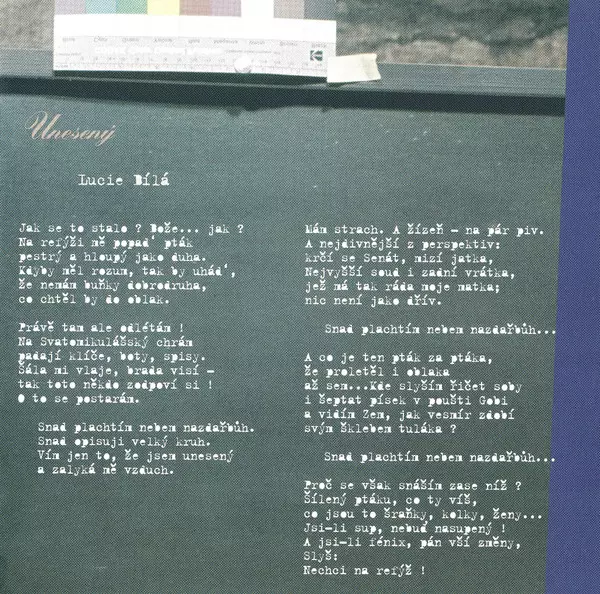 Unesený
Lucie Bílá
Jak se to stalo ? Bože... jak ?
Na refýži mě popad' pták
pestrý a hloupý jako duha.
Kdyby měl rozum, tak by uhád',
že nemám buňky dobrodruha,
co chtěl by do oblak.
Právě tam ale odlétám !
Na Svatomikulášský chrám
padají klíče, boty, spisy.
Šála mi vlaje, brada visí -
tak toto někdo zodpoví si !
O to se postarám.
Snad plachtím nebem nazdařbůh.
Snad opisuji velký kruh.
Vím jen to, že jsem unesený
a zalyká mě vzduch.
Mám strach. A žízeň - na pár piv.
A nejdivnější z perspektiv:
krčí se Senát, mizí jatka,
Nejvyšší soud i zadní vrátka,
jež má tak ráda moje matka;
nic není jako dřív.
Snad plachtím nebem nazdařbůh...
A co je ten pták za ptáka,
že proletěl i oblaka
až sem...Kde slyším řičet soby
i šeptat písek v poušti Gobi
a vidím Zem, jak vesmír zdobí
svým šklebem tuláka ?
Snad plachtím nebem nazdařbůh...
Proč se však snáším zase níž ?
Šílený ptáku, co ty víš,
co jsou to šraňky, kolky, ženy...
Jsi-li sup, nebuď nasupený !
A jsi-li fénix, pán vší změny,
Slyš:
Nechci na refýž !